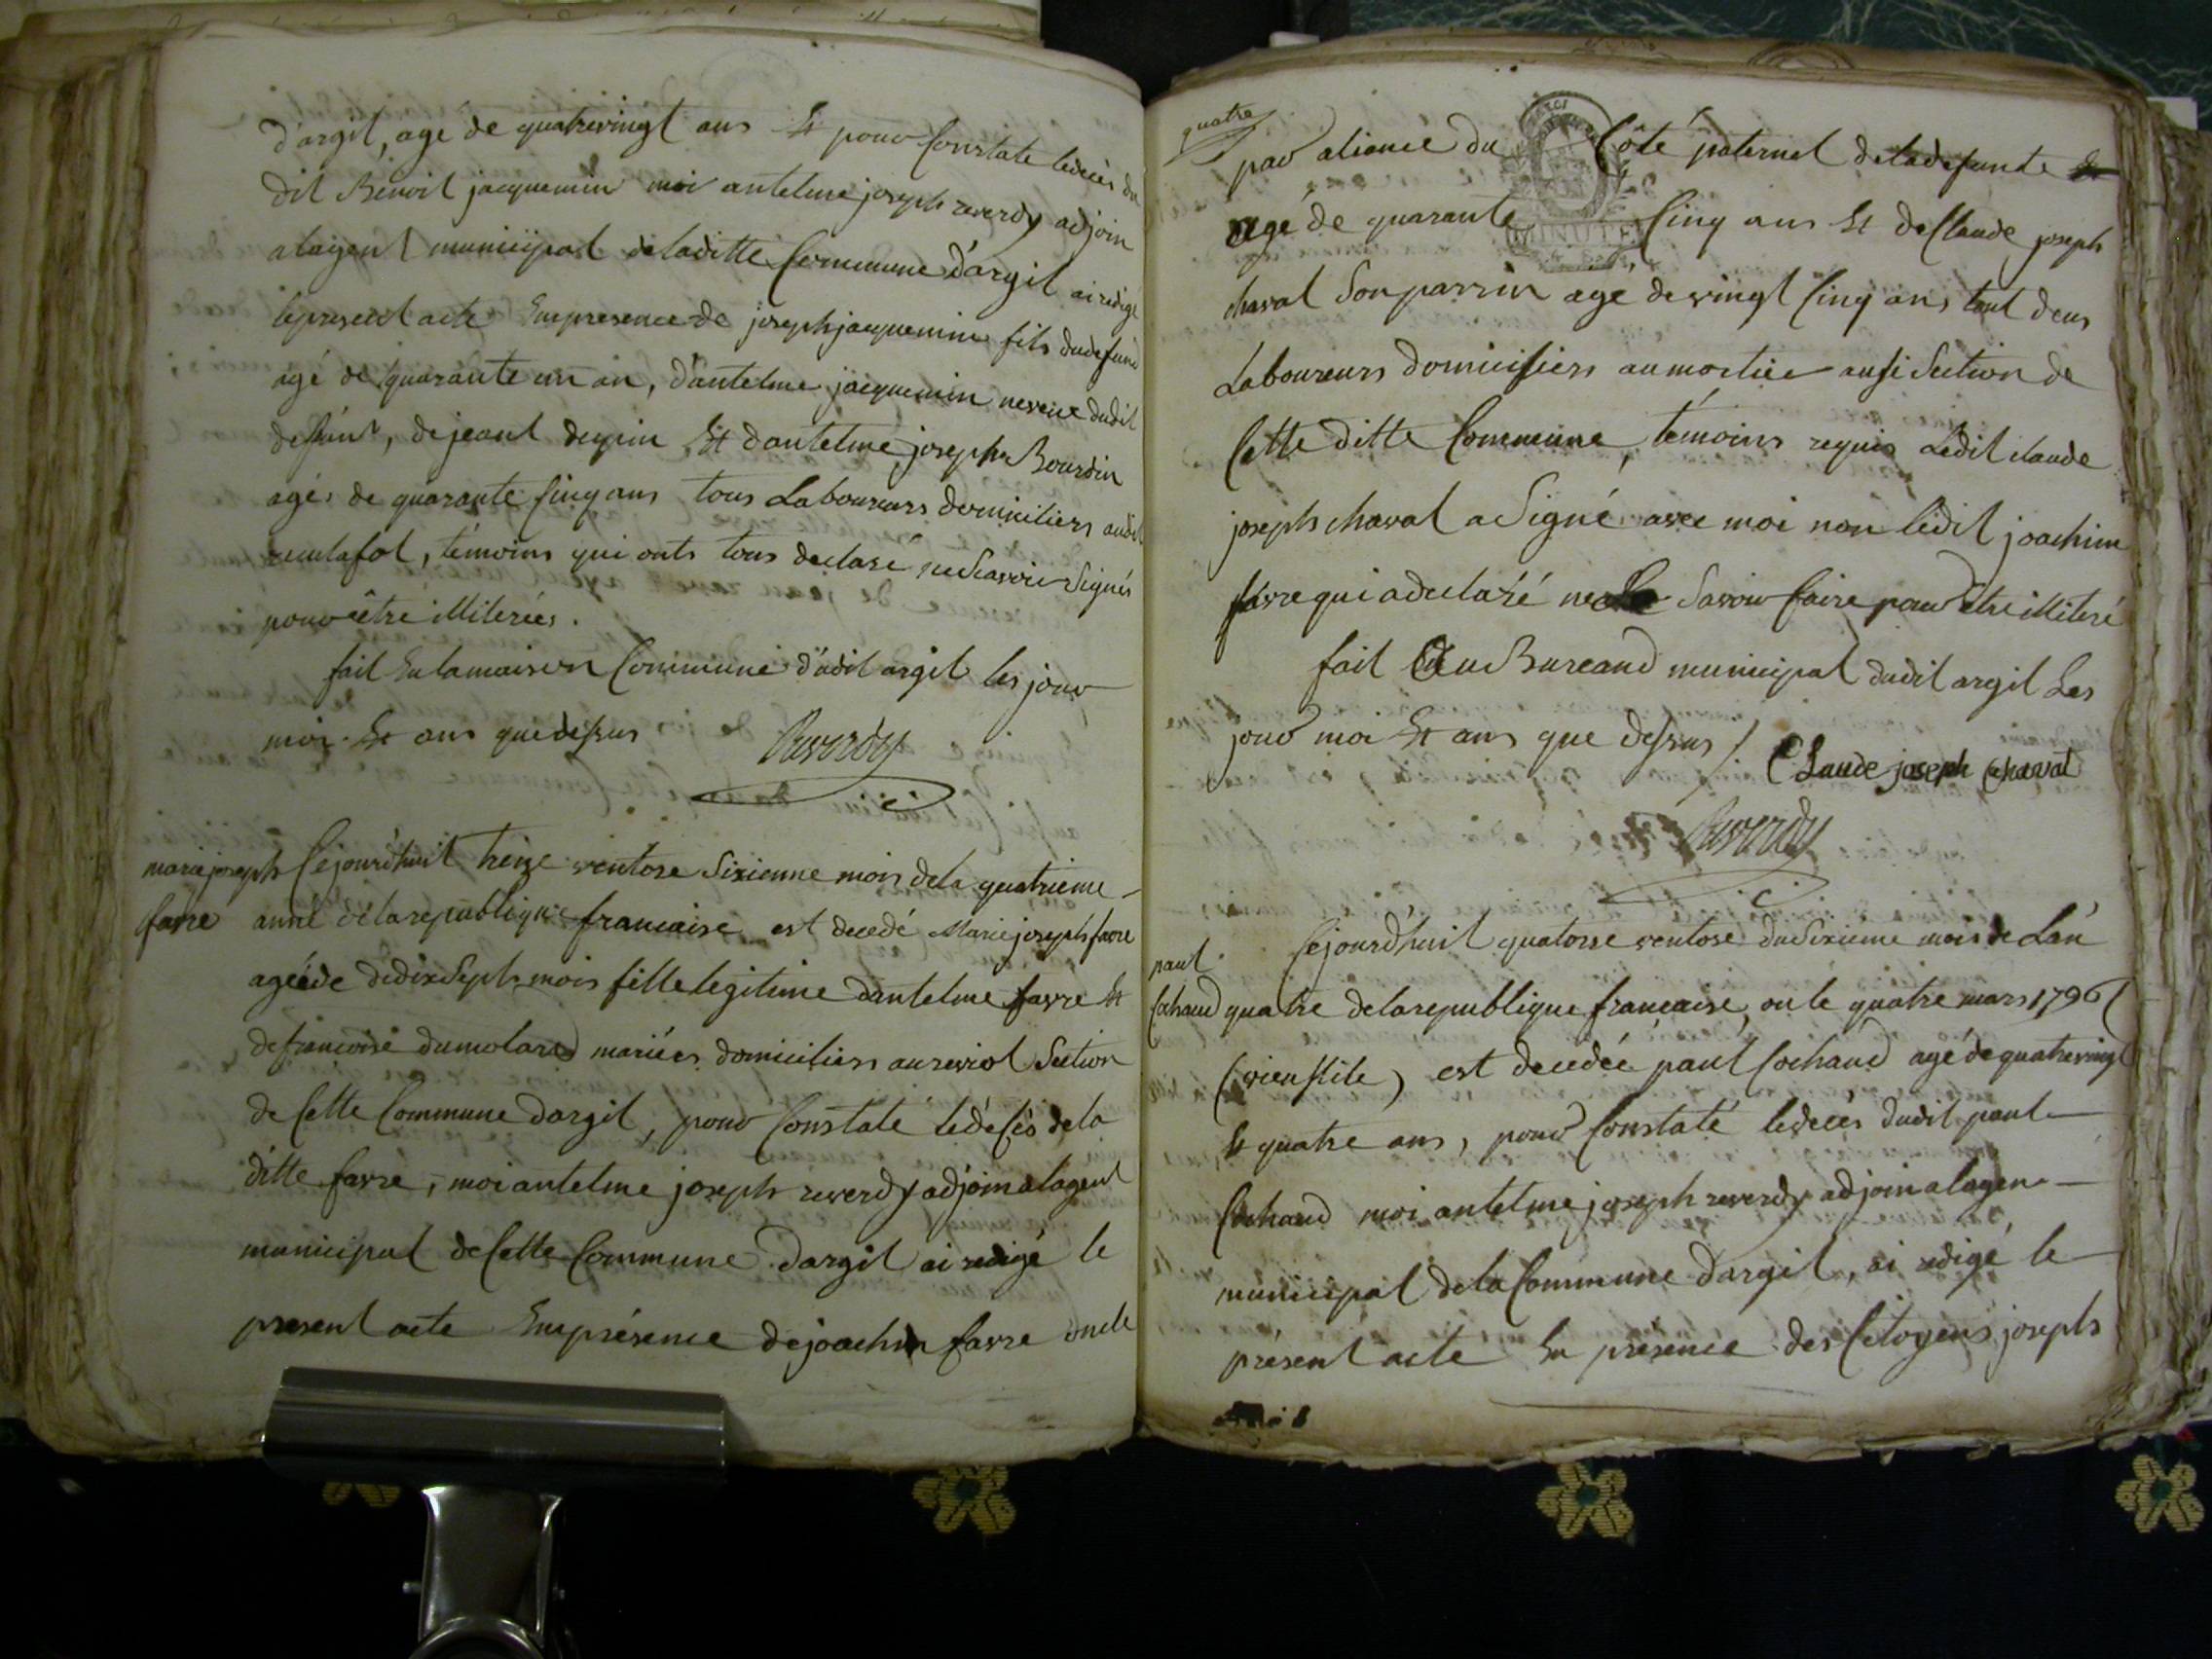 d'argit, agé de quatrevingt ans Et pour Constate ledecès du
dit Benoit jacquemin moi antelme joseph reverdy adjoin
alagent municipal deladitte Commune d'argit ai redigé
lepresent acte Enpresence de joseph jacquemin fils dudefunt
agé de quarante un an, d'antelme jacquemin neveu dudit
defunt, de jeant dupin Et d'antelme joseph Bourdin
agés de quarante Cinq ans tous Laboureurs domiciliers audit
reculafol, témoins qui onts tous declaré nescavoir Signés
pour être illiterées.
fait En lamaison Commune dudit argit les jour
moi Et ans que dessus Reverdy
marie joseph
favre
Cejourd'huit treize ventose Sixienne mois dela quatrieme
anné delarepublique francaise est decedé Marie joseph favre
ageéde dedix Sept mois fille legitime dantelme favre Et
defrancoise dumolard mariées domiciliers aureviol Section
de Cette Commune dargit, pour Constaté ledecès dela
ditte favre, moi antelme joseph reverdy adjoin alagent
municipal deCette Commune dargit ai redigé le
present acte Enprésence dejoachin favre oncle
quatre
par aliance du Côté paternel deladefunte
MINUTE
agé de quarante Cinq ans Et de Claude joseph
chaval Son parrin agé devingt Cinq ans tout deus
Laboureurs domicisiers aumortier ausi Section de
Cette ditte Commune, témoins requis Ledit claude
joseph chaval aSigné avec moi non ledit joachim
favre qui adeclaré ne Savoir faire pour être illiteré
fait Au Bureaud municipal dudit argit Les
jour moi Et ans que dessus / Claude joseph Chaval
Reverdy
paul
Cochaud
Cejourd'huit quatorse ventose duSixieme mois de Lan
quatre delarepublique francaise, ou le quatre mars 1796
(vieu stile) est decedée paul Cochaud agé dequatrevingt
Et quatre ans, pour Constaté ledecès dudit paul
Cochaud moi antelme joseph reverdy adjoin alagen
municipal dela Commune dargit, ai redigé le
présent acté En présence des Citoyens joseph